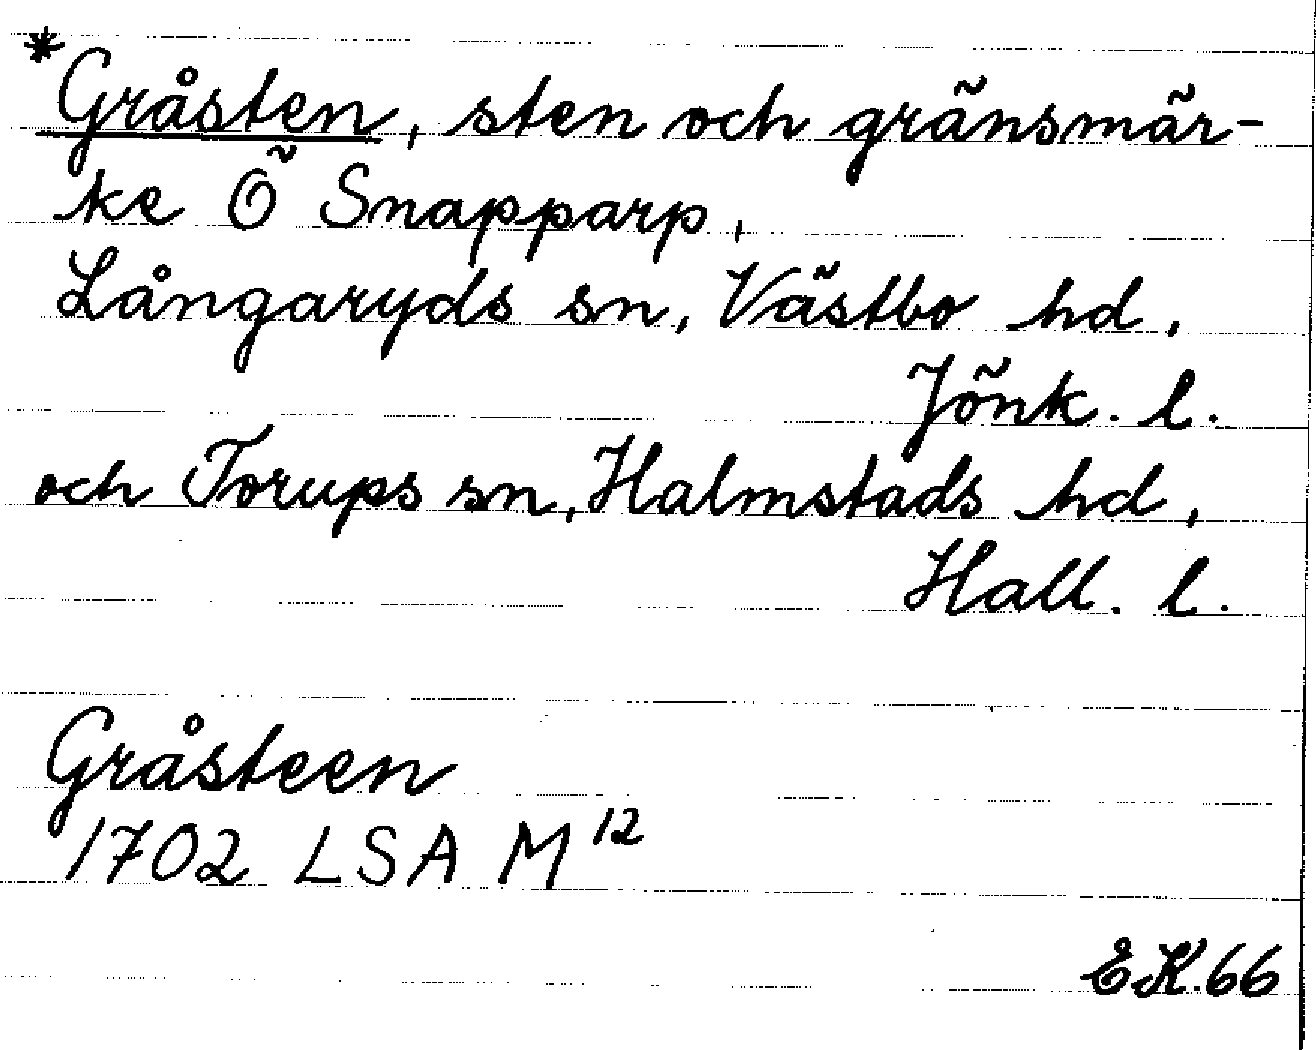 *Gråsten, sten och gränsmär-
ke Ö Snapparp,
Långaryds sn, Västbo hd,
Jönk. l.
och Torups sn, Halmstads hd,
Hall. l.
Gråsteen
1702 LSA M¹²
EK.66